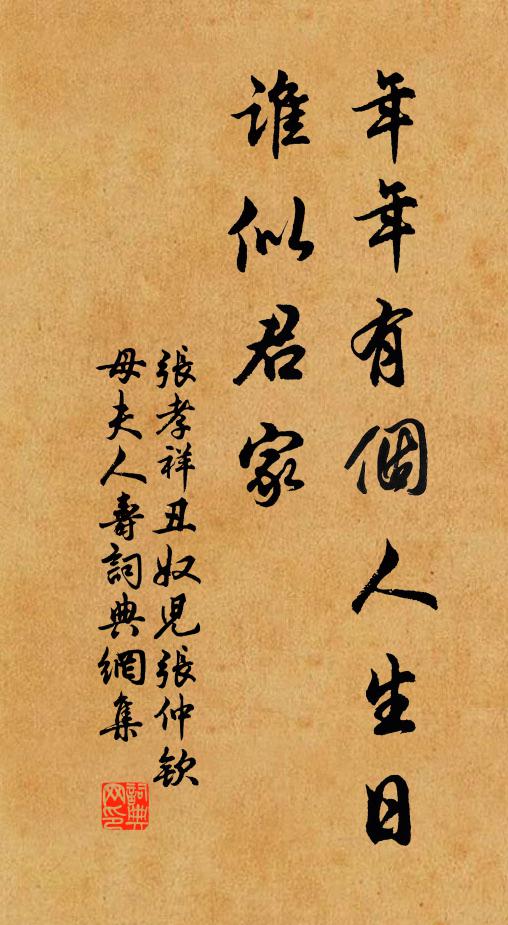 年年有個人生日
誰似君家
張孝祥丑奴兒張仲欽
母夫人壽詞典網集
詞典网印